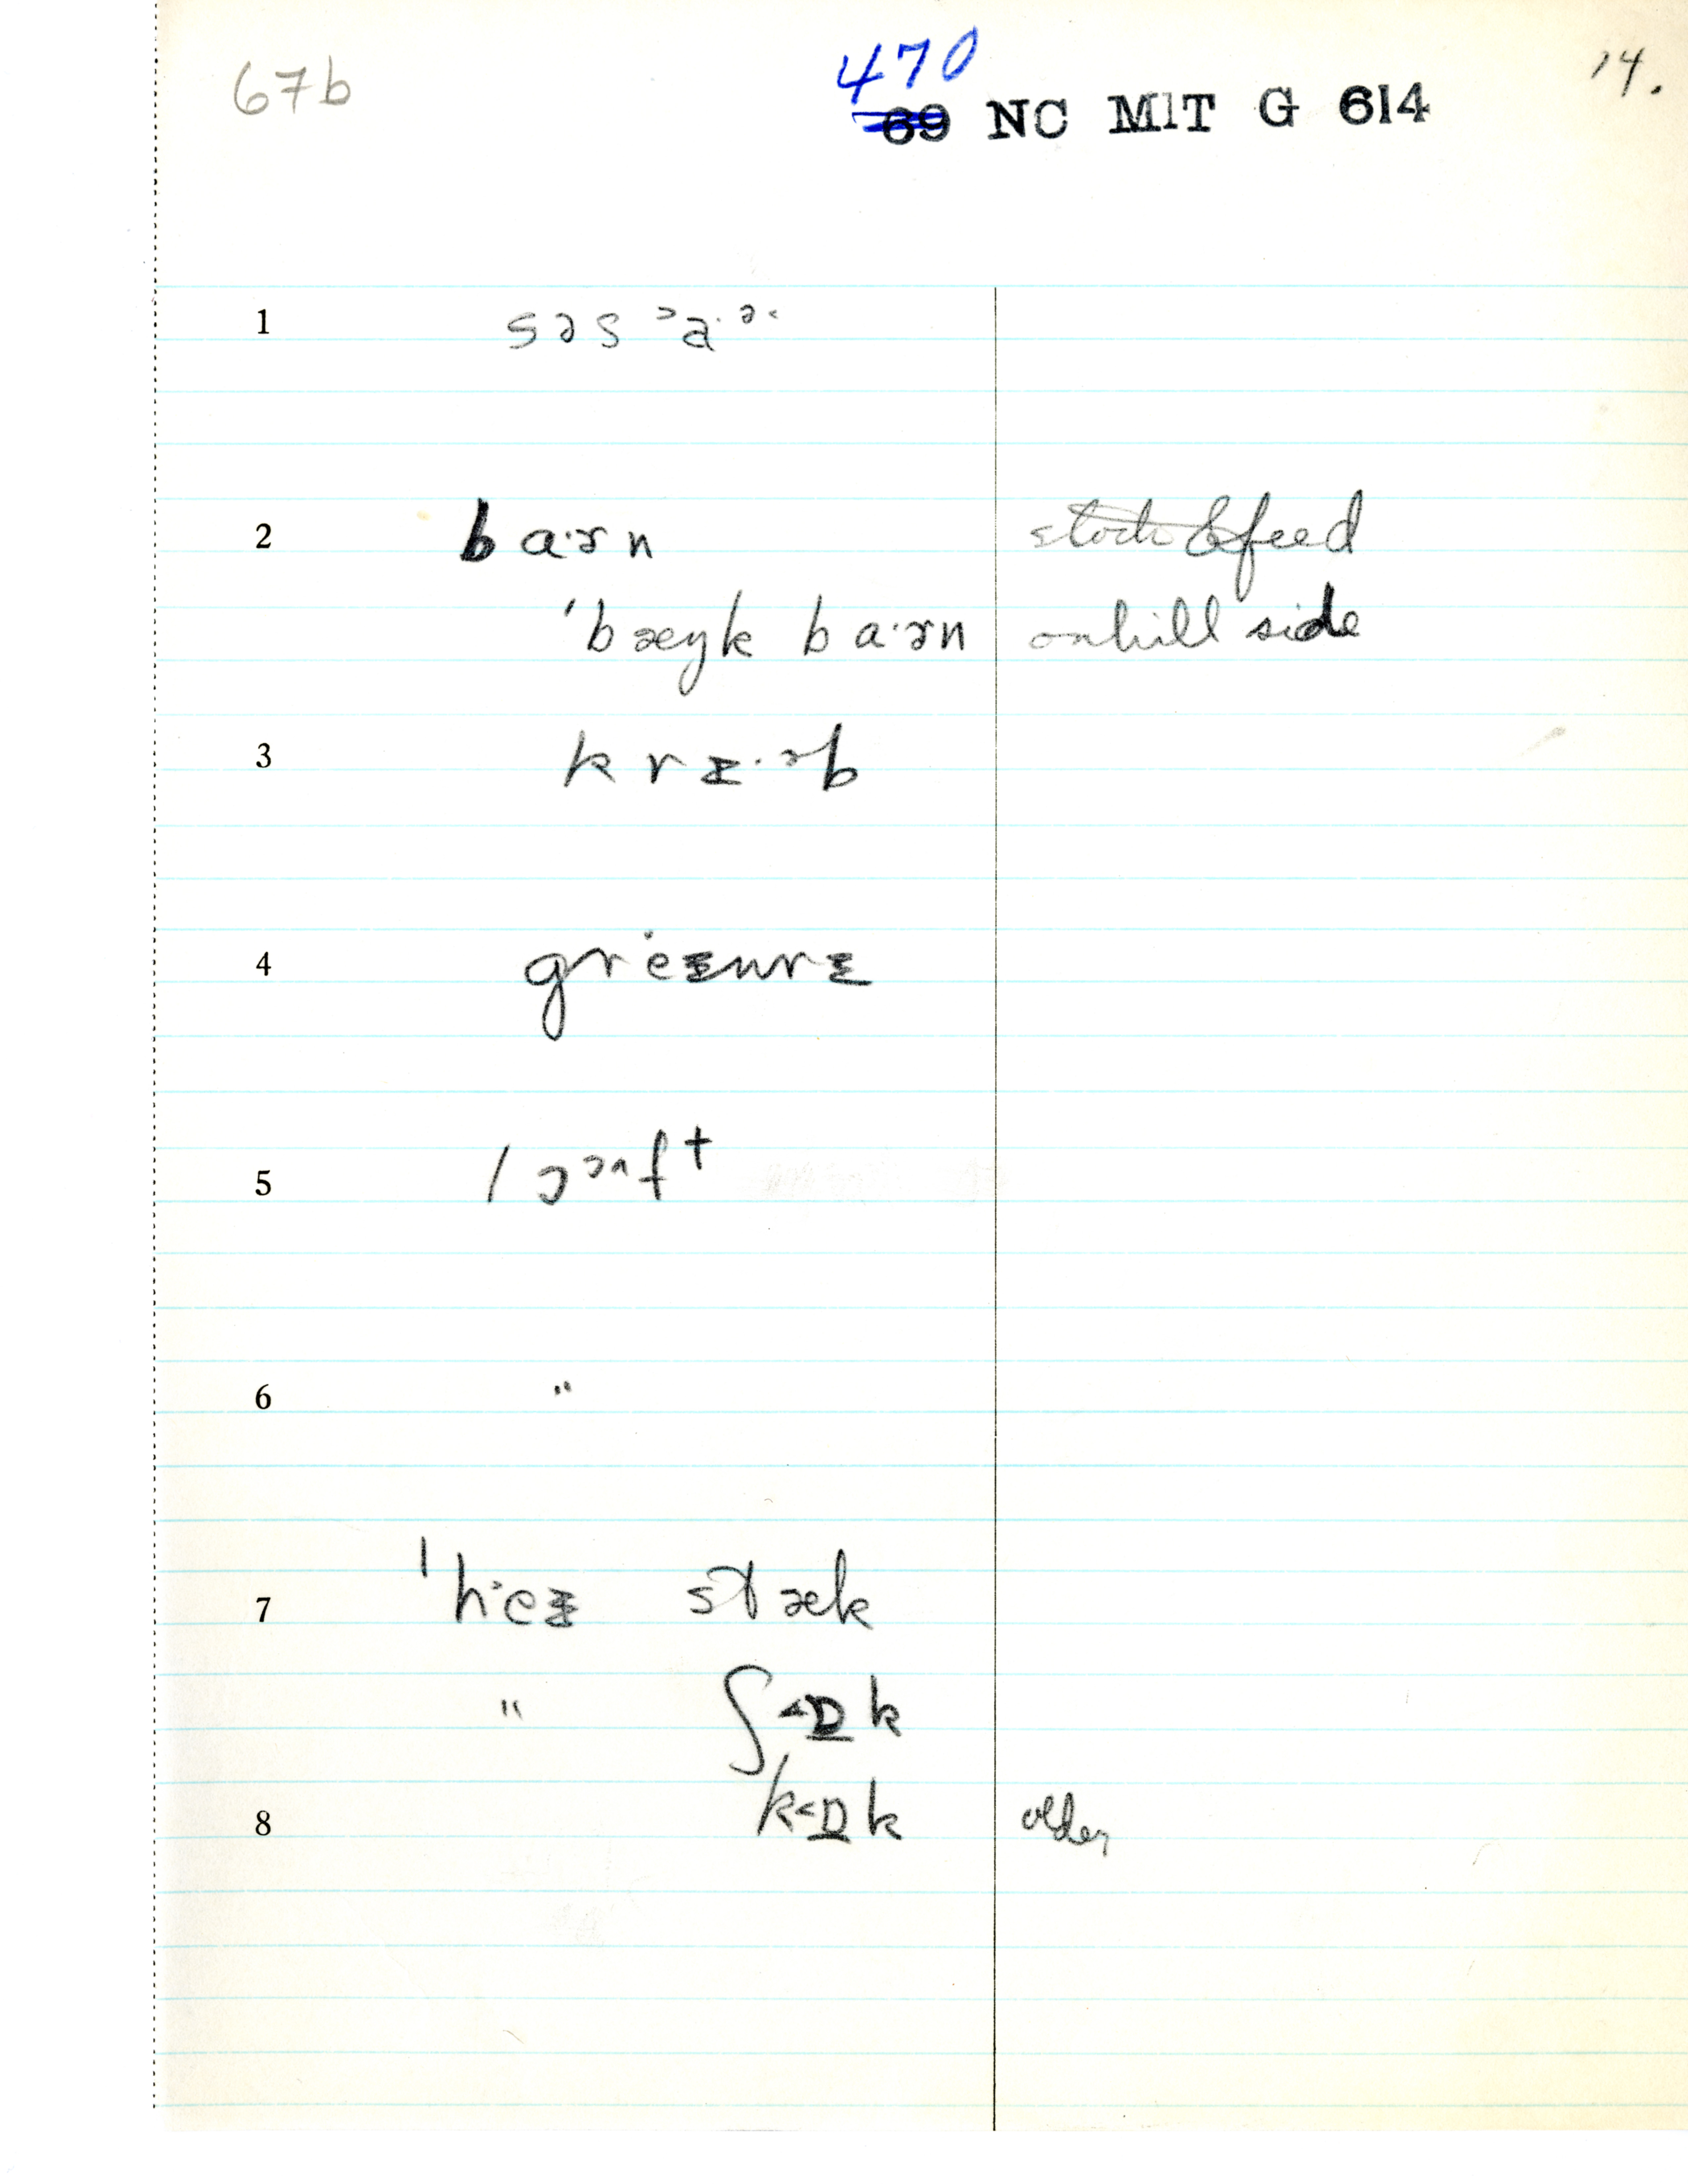 67b
470
14.
69 NC MIT G 614
1 səs ᵓa·ᵊ˂
2 ba·ɚn stock & feed
'bæŋk ba·ɚn on hill side
3 krɪ·ᵊb
4 gre·ɪnrɪ
5 lɔᵊʌft
6 "
7 'he·ɪ stæk
" ʃ˂ɒk
8 k˂ɒk older